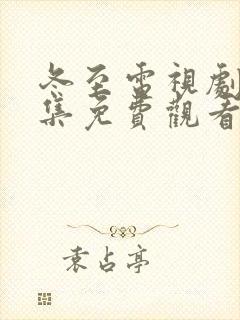 冬至電視劇
集免費觀看
袁占亭